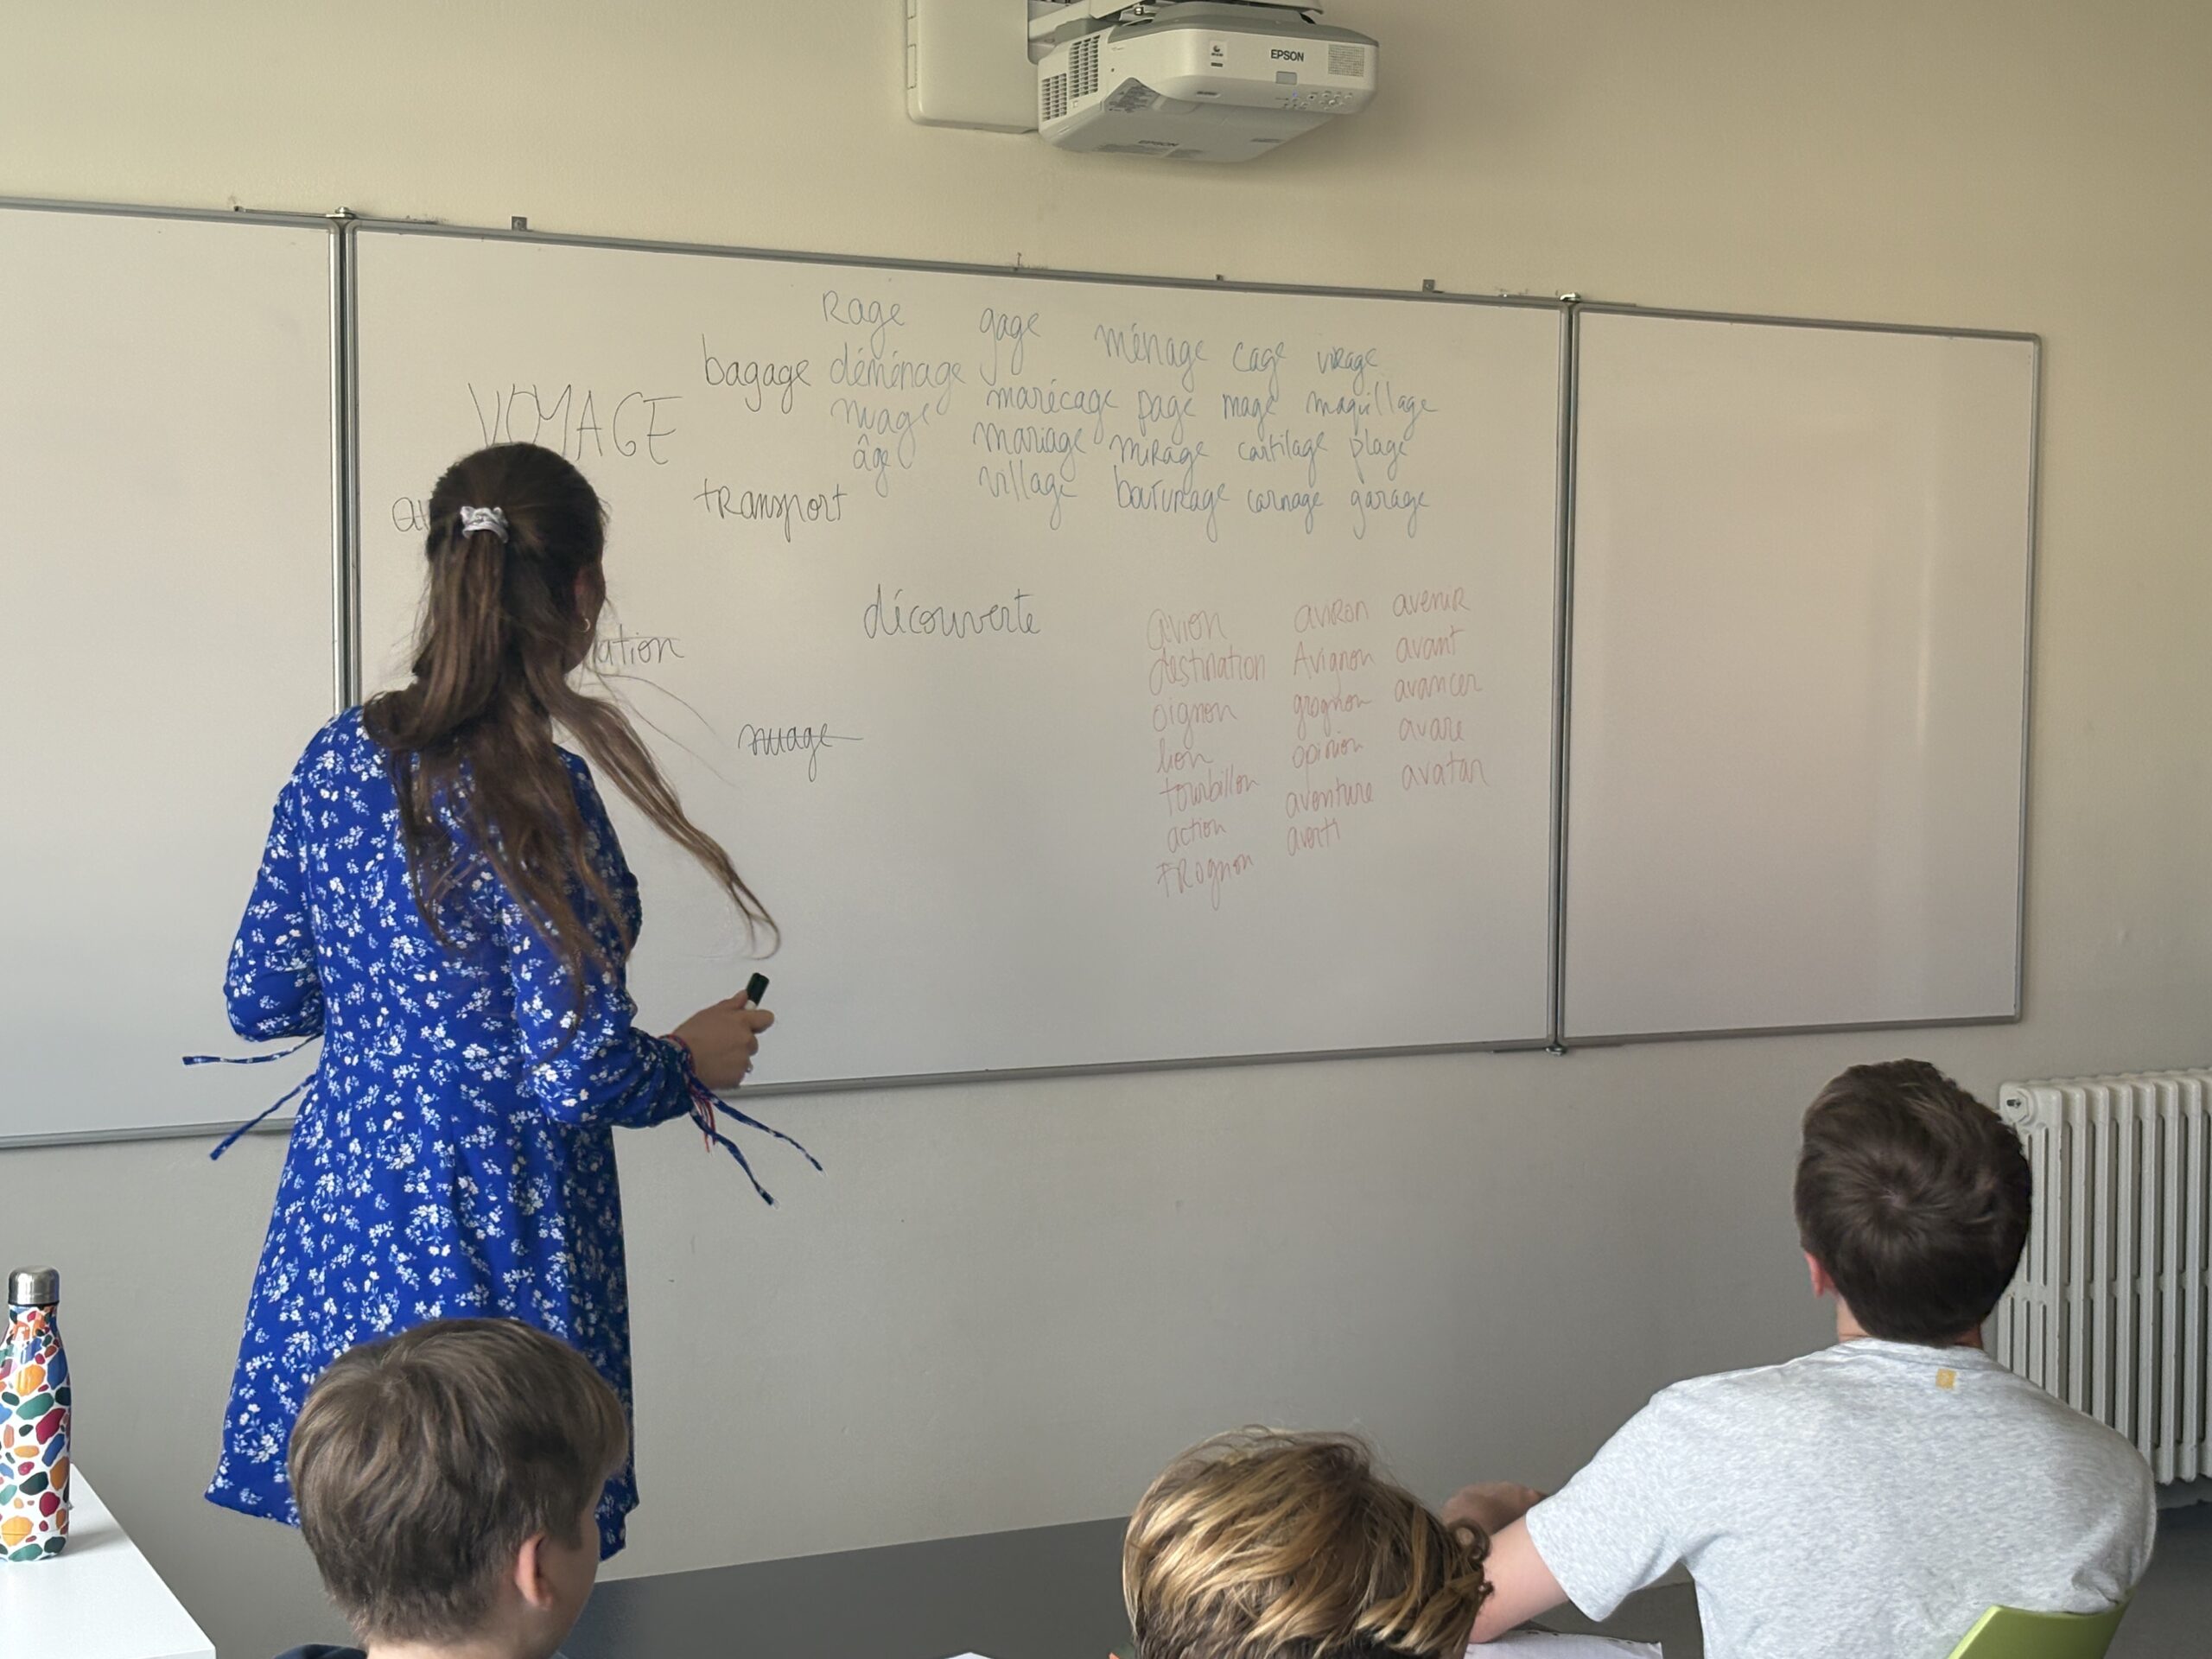 EPSON
EPSON
Rage gage ménage cage virage
bagage déménage
VOYAGE
nuage marécage page mage maquillage
âge mariage mirage cartilage plage
transport village carnage garage
découverte
nuage
avion aviron avenir
destination Avignon avant
oignon grognon avancer
lion opinion avare
tourbillon aventure avatar
action averti
TRognon